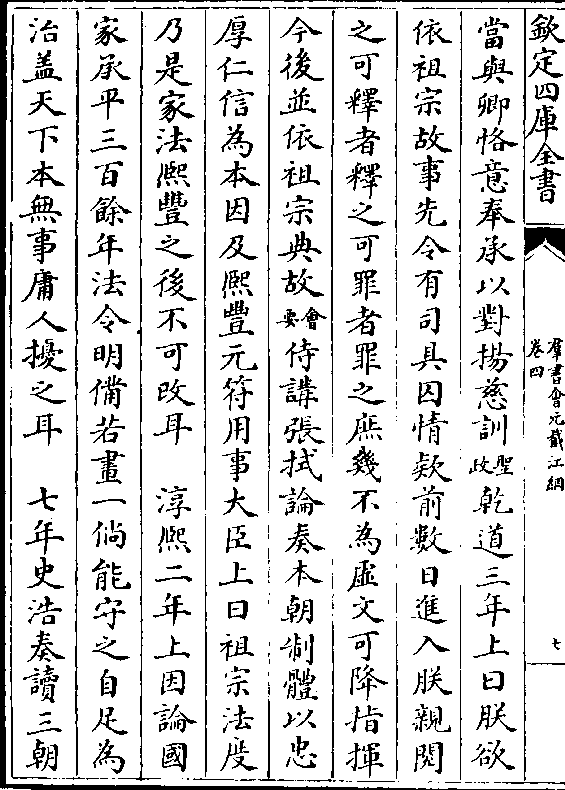 欽定四庫全書
羣書會元截江網
卷四
七
當與卿恪意奉承以對揚慈訓聖政乾道三年上曰朕欲
依祖宗故事先令有司具囚情欵前數日進入朕親閱
之可釋者釋之可罪者罪之庶幾不為虛文可降指揮
今後並依祖宗典故會要侍講張栻論奏本朝制體以忠
厚仁信為本因及熈豐元符用事大臣上曰祖宗法度
乃是家法熈豐之後不可改耳 淳熈二年上因論國
家承平三百餘年法令明備若畫一倘能守之自足為
治盖天下本無事庸人擾之耳 七年史浩奏讀三朝